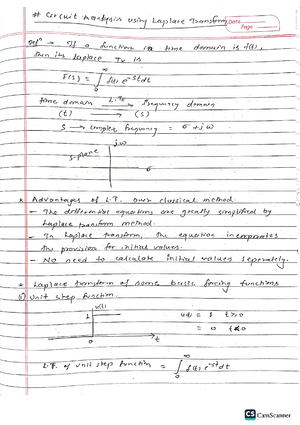 # Circuit Analysis using Laplace Transform
Date
Page
Defn → If a function in time domain is f(t),
then its Laplace Tx is
F(s) = ∫₀^∞ f(t) e^-st dt
time domain L.Tx → frequency domain
(t) → (s)
S → complex frequency = σ + jω
jω
s-plane
σ
* Advantages of L.T. over classical method
- The differential equations are greatly simplified by
Laplace transform method.
- In Laplace transform, the equation incorporates
the provision for initial values.
- No need to calculate initial values seperately.
* Laplace transform of some basic forcing functions
(i) Unit step function
u(t)
1
0
t
u(t) = 1 t>0
= 0 t<0
L.T. of unit step function = ∫₀^∞ f(t) e^-st dt
CS CamScanner